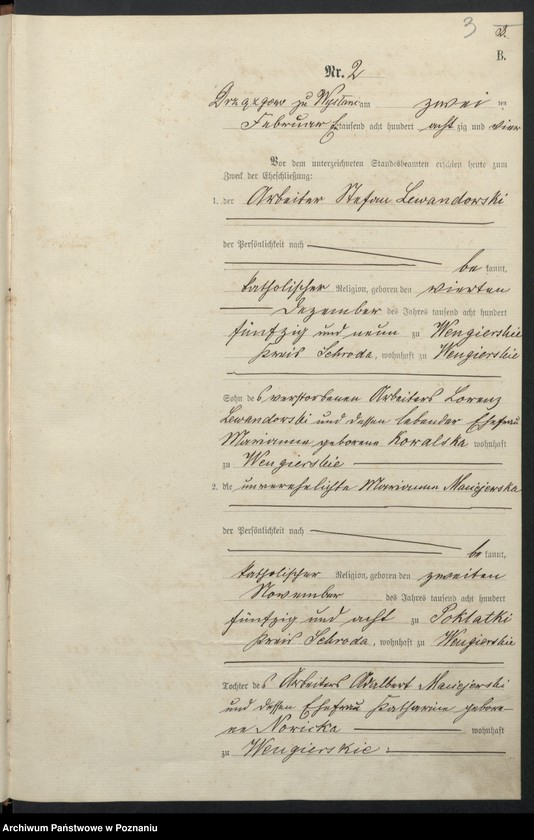 3
2.
B.
Nr. 2
am zwei ten
Februar tausend acht hundert acht zig und vier
Vor dem unterzeichneten Standesbeamten erschien heute zum
Zweck der Eheschließung:
1. der Arbeiter Stefan Lewandowski
der Persönlichkeit nach
be kannt,
katholischer Religion, geboren den vierten
Dezember des Jahres tausend acht hundert
fünfzig und neun zu Wengierskie
Kreis Schroda, wohnhaft zu Wengierskie
Sohn des verstorbenen Arbeiters Lorenz
Lewandowski und dessen lebender Ehefrau
Marianna geborene Kowalska wohnhaft
zu Wengierskie
2. die unverehelichte Marianna Maciejewska
der Persönlichkeit nach
be kannt,
katholischer Religion, geboren den zweiten
November des Jahres tausend acht hundert
fünfzig und acht zu Poklatki
Kreis Schroda, wohnhaft zu Wengierskie
Tochter des Arbeiters Adalbert Maciejewski
und dessen Ehefrau Katharina gebore-
ne wohnhaft
zu Wengierskie
Archiwum Państwowe w Poznaniu